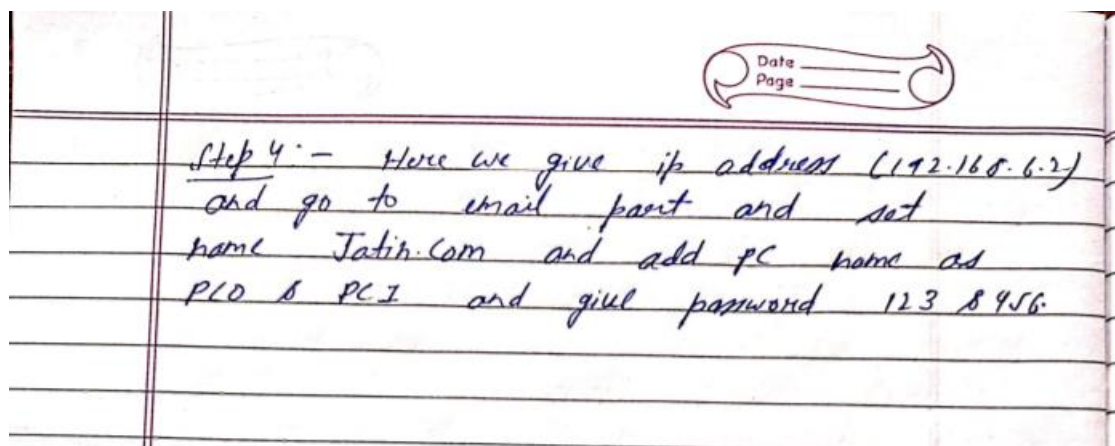 Date
Page
Step 4:- Here we give ip address (192.168.6.2)
and go to email part and set
name Jatin.Com and add PC name as
PC0 & PC1 and give password 123 & 456.